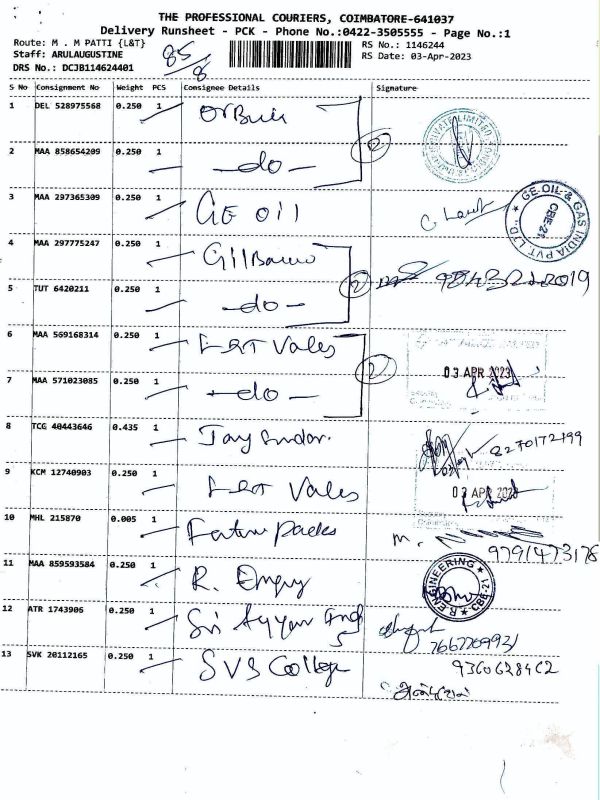 THE PROFESSIONAL COURIERS, COIMBATORE-641037
Delivery Runsheet - PCK - Phone No.:0422-3505555 - Page No.:1
Route: M . M PATTI {L&T} 85/8 RS No.: 1146244
Staff: ARULAUGUSTINE RS Date: 03-Apr-2023
DRS No.: DCJB114624401
S No Consignment No Weight PCS Consignee Details Signature
1 DEL 528975568 0.250 1
2 MAA 858654209 0.250 1 -do- 2
3 MAA 297365309 0.250 1 GE Oil
GE OIL & GAS INDIA PVT. LTD. CBE-21
4 MAA 297775247 0.250 1
5 TUT 6420211 0.250 1 -do- 2
6 MAA 569168314 0.250 1 L&T Vales
03 APR 2023
7 MAA 571023085 0.250 1 -do- 2
8 TCG 40443646 0.435 1 Jay Sundar. 8270172199
9 KCM 12740903 0.250 1 L&T Vales
03 APR 2023
10 MHL 215870 0.005 1 M. 9791473178
11 MAA 859593584 0.250 1 R. Engg
R ENGINEERING CBE-21
12 ATR 1743905 0.250 1 Sri Ayyan Engg
13 SVK 20112165 0.250 1 SVS College 9360628462